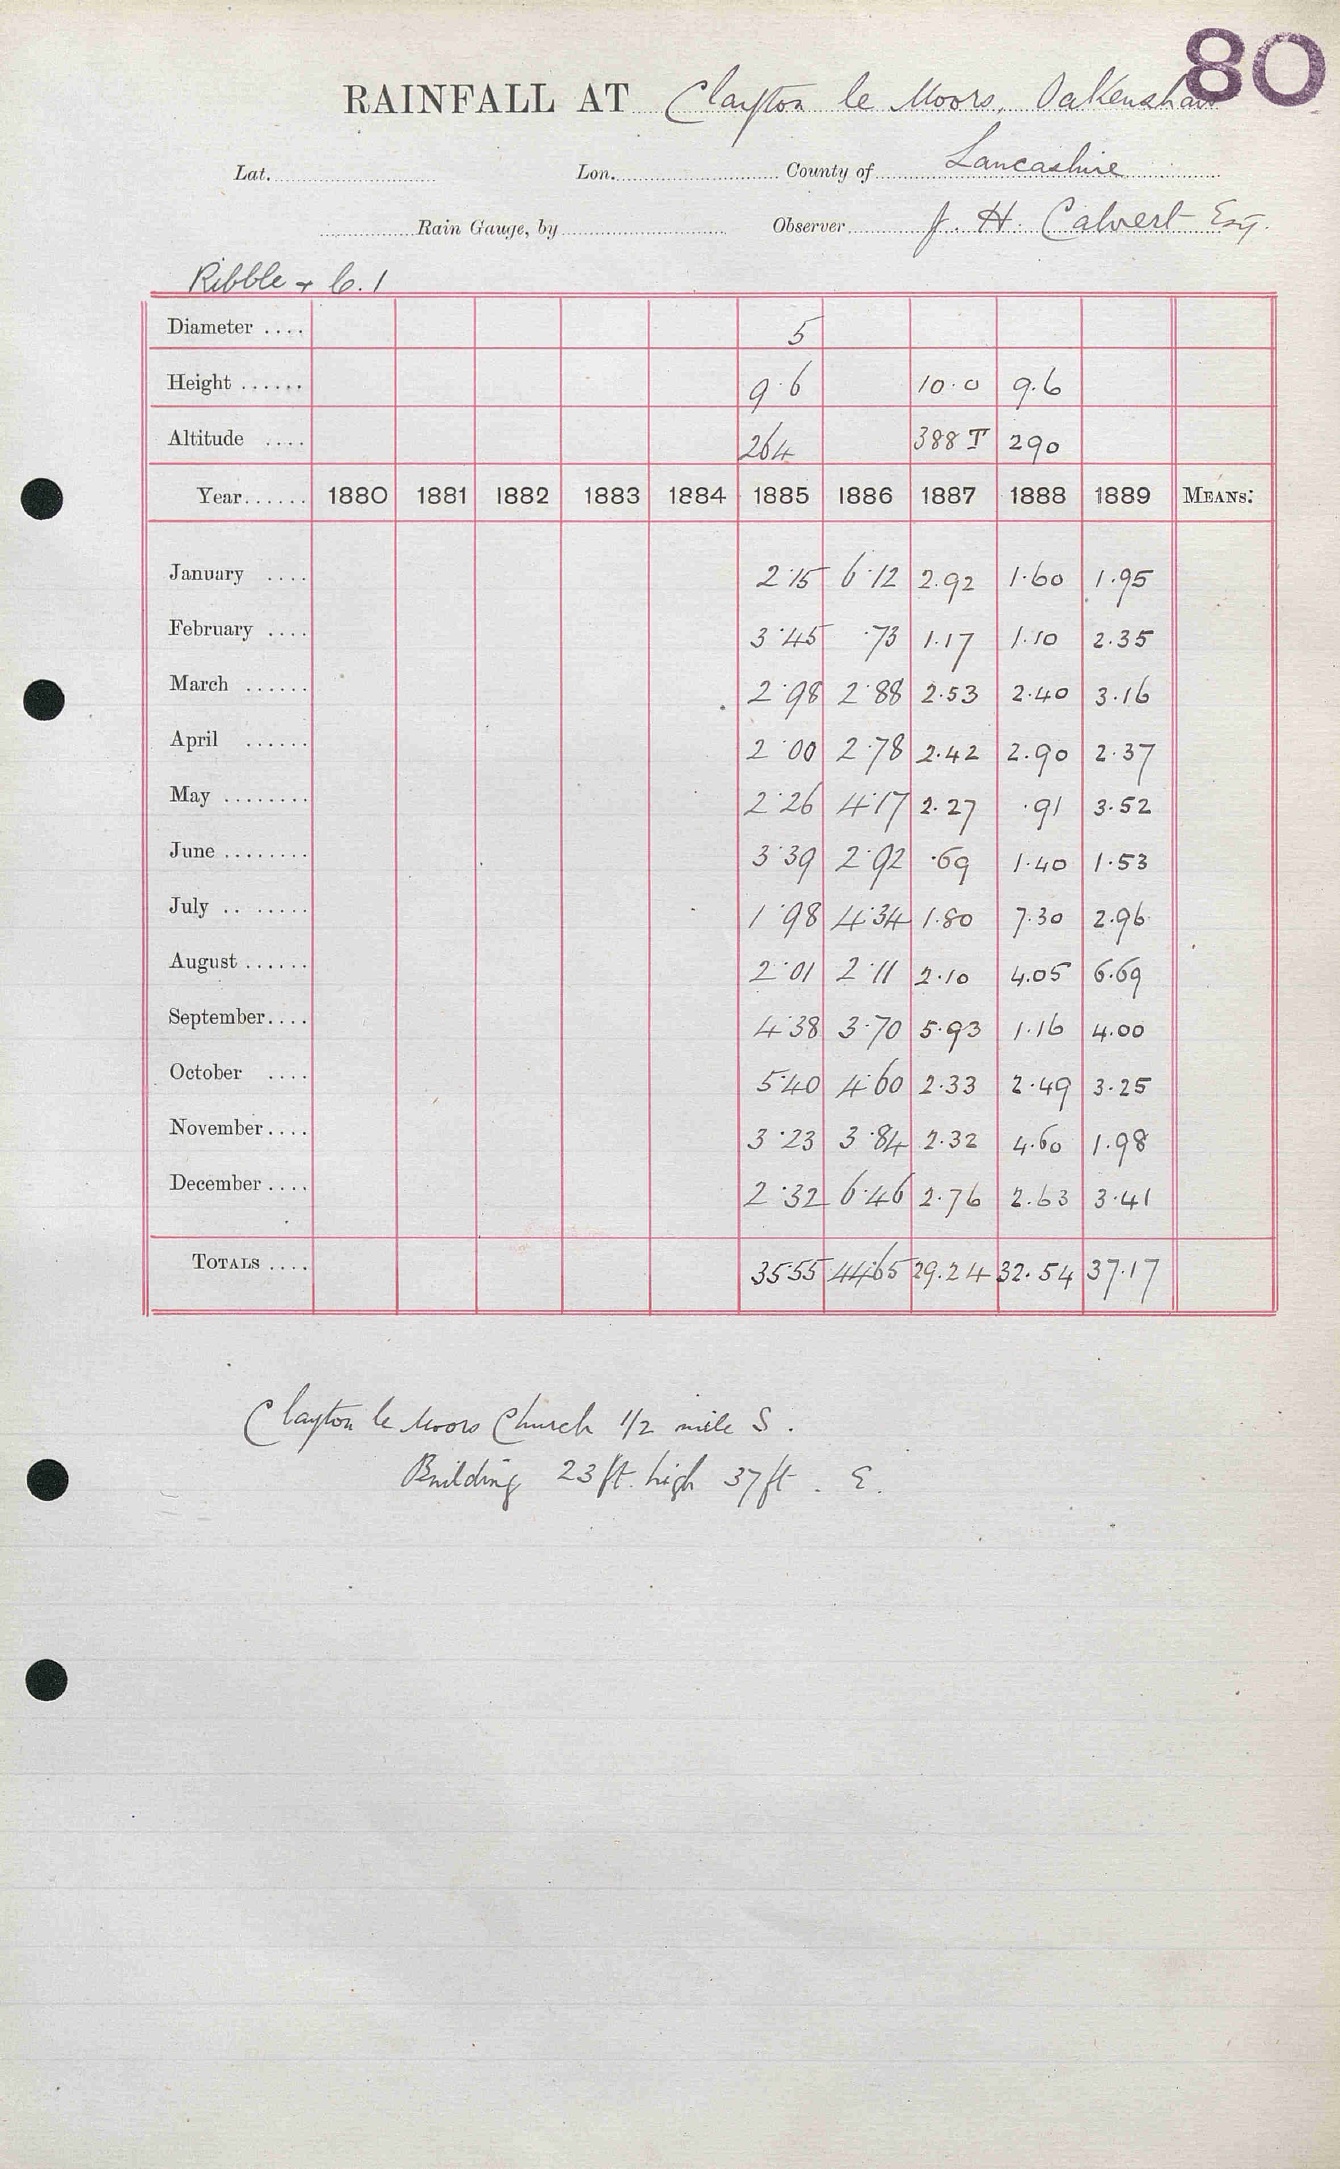 80
RAINFALL AT Clayton le Moors, Oakenshaw
Lat. Lon. County of Lancashire
Rain Gauge, by Observer J. H. Calvert Esq.
Ribble + C. 1
Diameter .... 5
Height ...... 9.6 10.0 9.6
Altitude .... 264 388 T 290
Year ...... 1880 1881 1882 1883 1884 1885 1886 1887 1888 1889 MEANS:
January .... 2.15 6.12 2.92 1.60 1.95
February .... 3.45 .73 1.17 1.10 2.35
March ...... 2.98 2.88 2.53 2.40 3.16
April ...... 2.00 2.78 2.42 2.90 2.37
May ........ 2.26 4.17 2.27 .91 3.52
June ........ 3.39 2.92 .69 1.40 1.53
July .. ..... 1.98 4.34 1.80 7.30 2.96
August ...... 2.01 2.11 2.10 4.05 6.69
September .... 4.38 3.70 5.93 1.16 4.00
October .... 5.40 4.60 2.33 2.49 3.25
November .... 3.23 3.84 2.32 4.60 1.98
December .... 2.32 6.46 2.76 2.63 3.41
TOTALS .... 35.55 44.65 29.24 32.54 37.17
Clayton le Moors Church 1/2 mile S.
Building 23 ft. high 37 ft. E.